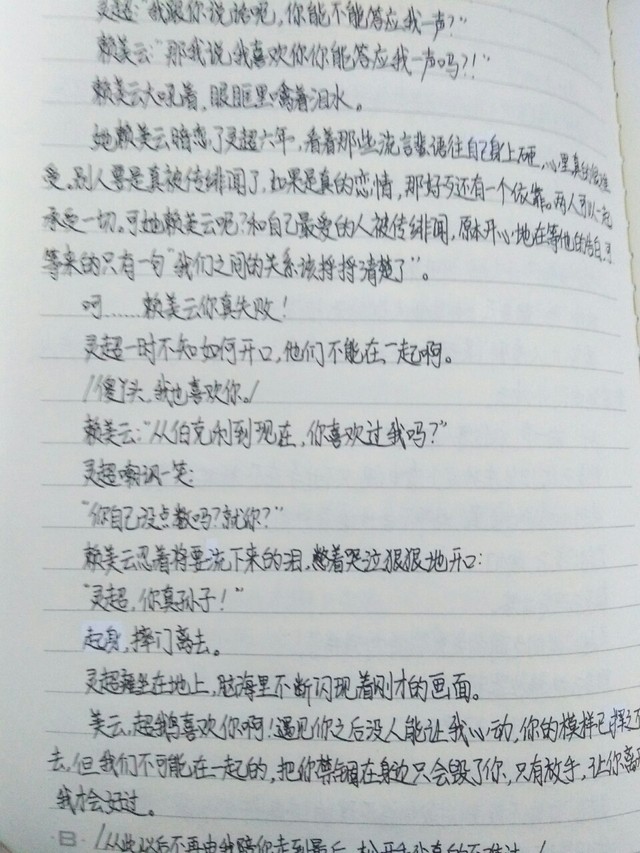 灵超："我跟你说话呢，你能不能答应我一声？"
赖美云："那我说，我喜欢你你能答应我一声吗？！"
赖美云大吼着，眼眶里噙着泪水。
她赖美云暗恋了灵超六年，看着那些流言蜚语往自己身上砸，心里真的很难
受。别人要是真被传绯闻了，如果是真的恋情，那好歹还有一个依靠。两人可以一起
承受一切。可她赖美云呢？和自己最爱的人被传绯闻，原本开心地在等他的告白，
等来的只有一句"我们之间的关系该捋捋清楚了"。
呵……赖美云你真失败！
灵超一时不知如何开口，他们不能在一起啊。
/傻丫头，我也喜欢你。/
赖美云："从伯克利到现在，你喜欢过我吗？"
灵超嘲讽一笑：
"你自己没点数吗？就你？"
赖美云忍着将要流下来的泪，憋着哭泣狠狠地开口：
"灵超，你真孙子！"
起身，摔门离去。
灵超瘫坐在地上，脑海里不断闪现着刚才的画面。
美云，超鹅喜欢你啊！遇见你之后没人能让我心动，你的模样已挥之不
去，但我们不可能在一起的，把你禁锢在身边只会毁了你，只有放手，让你离
我才会好过。
日 /从此以后不再由我陪你走到最后，松开手我真的不难过/